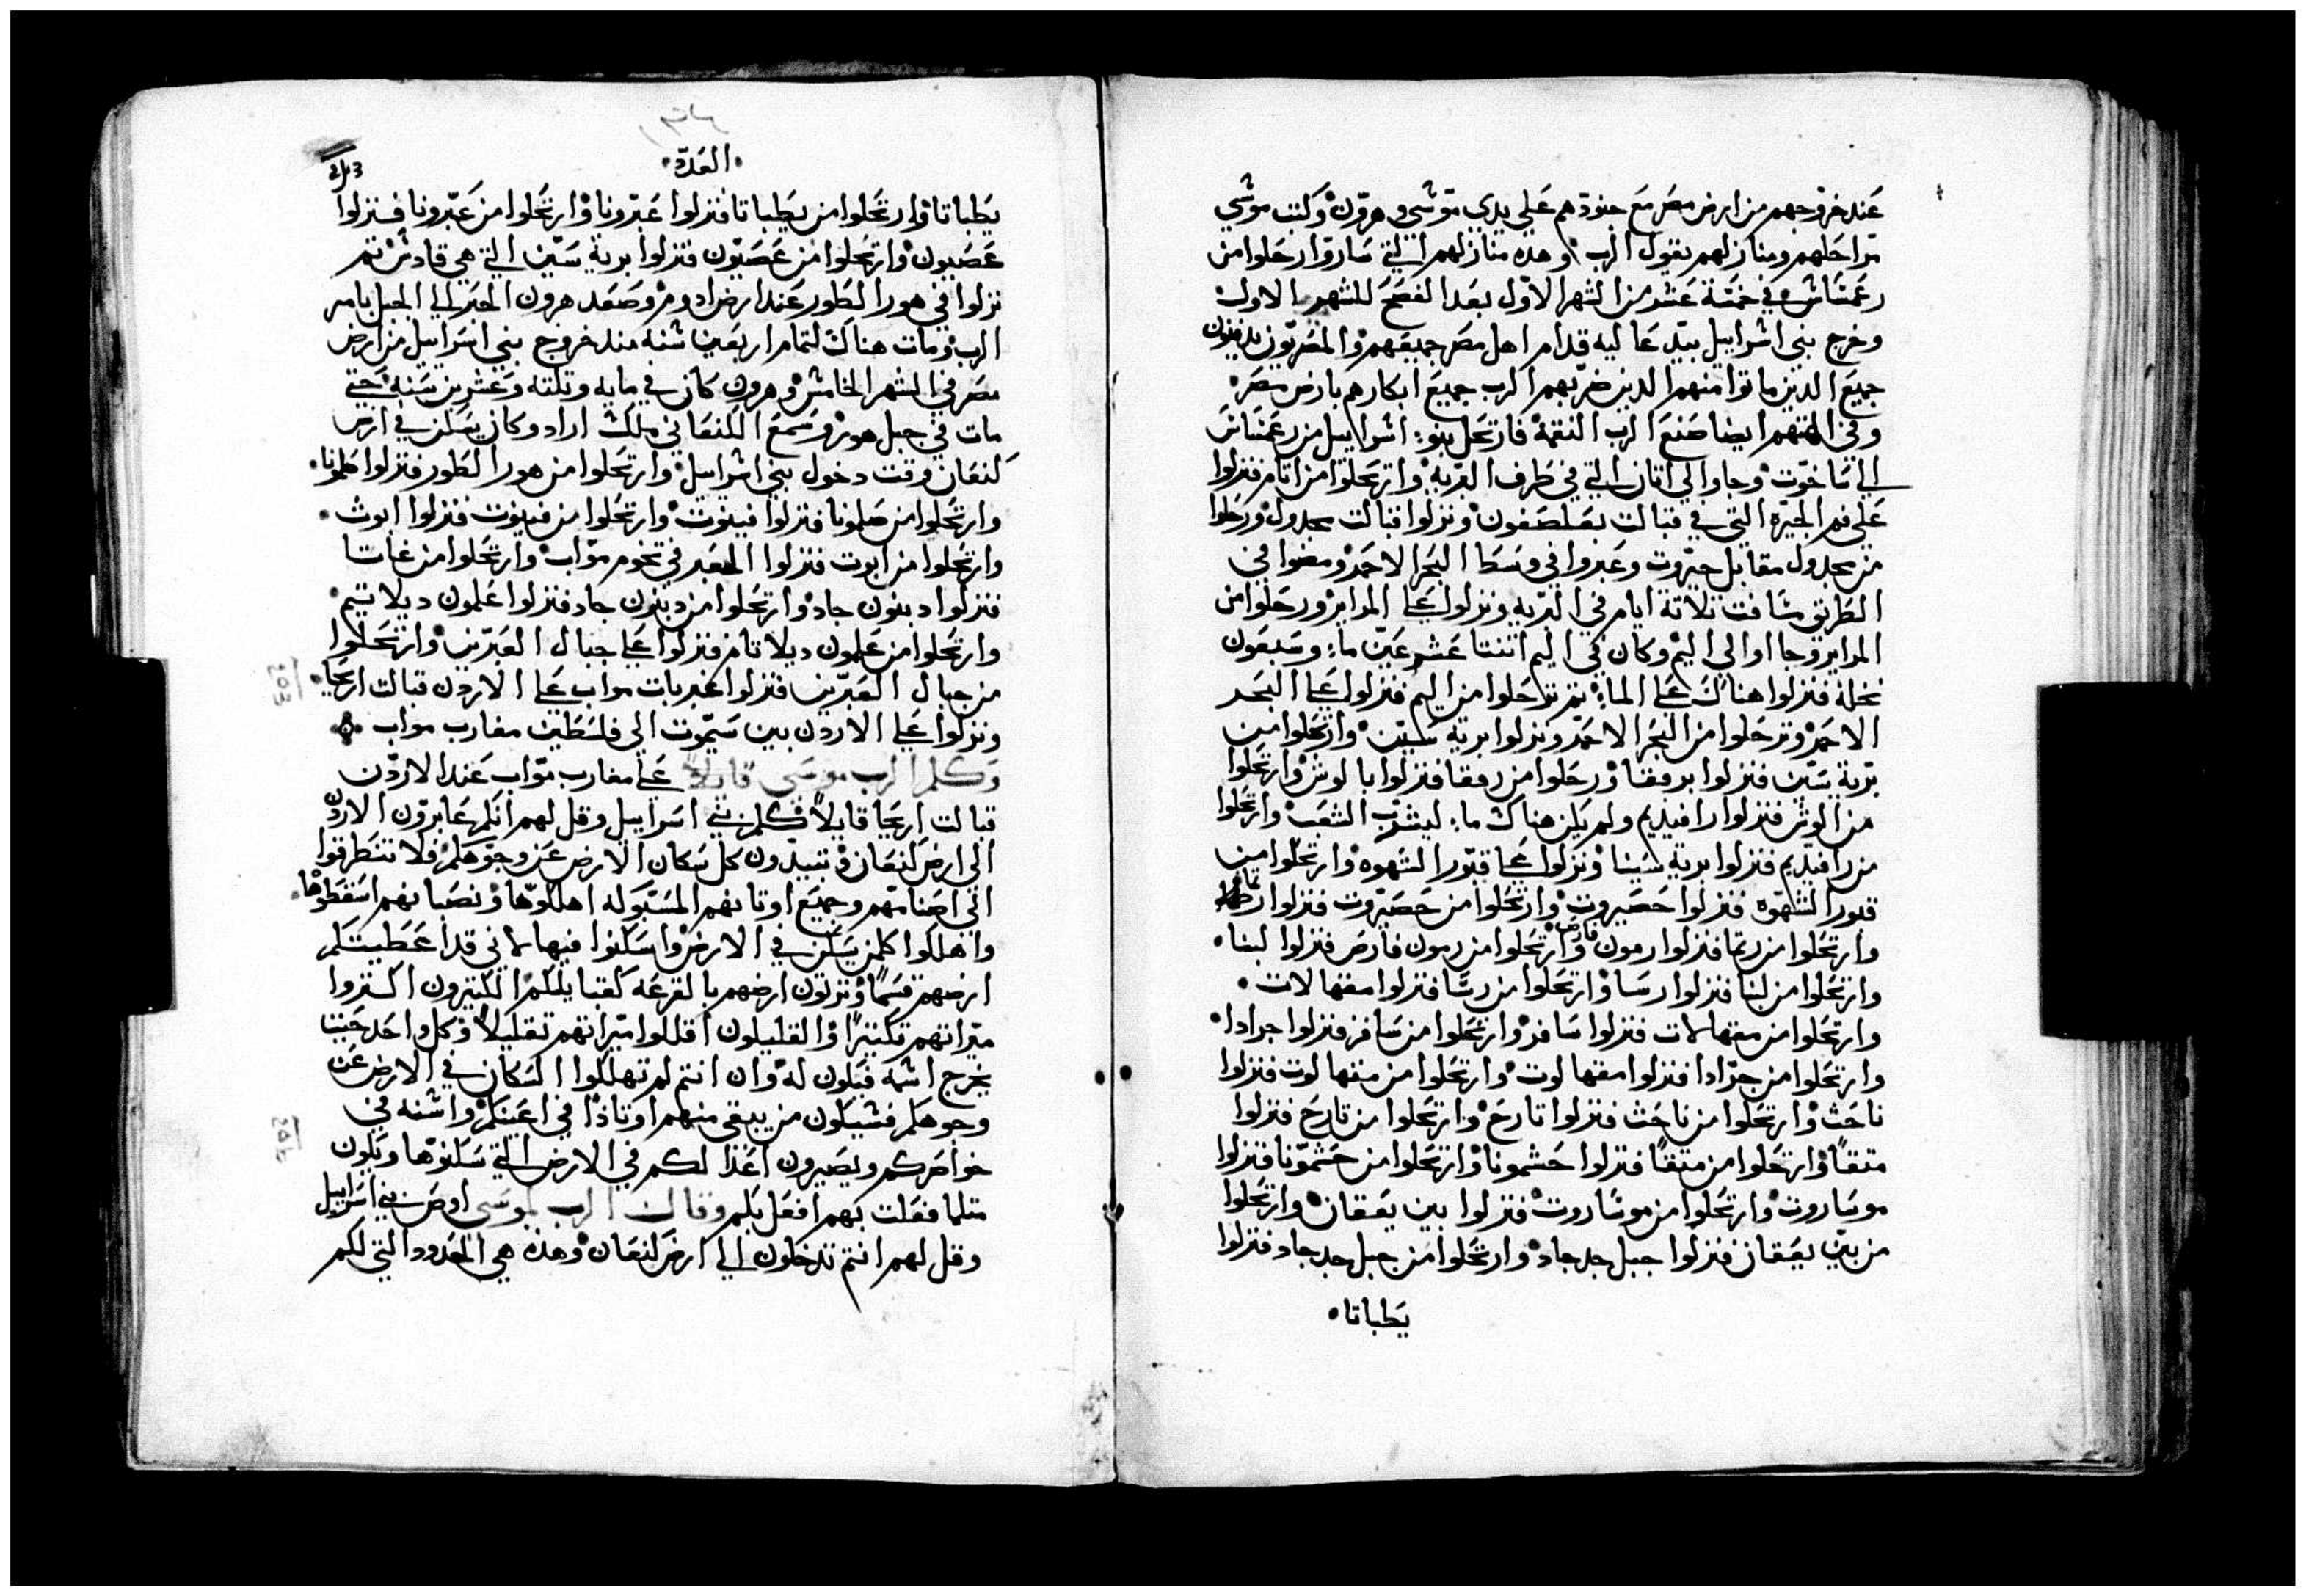 عند خروجهم من ارض مصر مع جنودهم علي يدي موشي وهرون وكتب موشي
مراحلهم ومنازلهم بقول الرب وهذه منازلهم التي ساروا رحلوا من
رعمساش في خمسة عشر من الشهر الاول بعد الفصح للشهر الاول
وخرج بني اشراييل بيد عاليه قدام اهل مصر جميعهم والمصريون يدفنون
جميع الدين ماتوا منهم الدين ضربهم الرب جميع ابكارهم بارض مصر
وفي الهتهم ايضا صنع الرب النقمة فارتحل بنو اشراييل من رعمساس
الي ساخوت وجاوا الي اتان التي في طرف البريه وارتحلوا من اتام فنزلوا
علي فم الحيره التي في قبالت بعلصفون ونزلوا قبالت مجدول ورحلوا
من مجدول مقابل حيروت وعبروا في وسط البحر الاحمر ومضوا في
الطريق مسافت تلاتة ايام في البريه ونزلوا علي المراير ورحلوا من
المراير وجااوا الي اليم وكان في اليم اتنتا عشر عين ماء وسبعون
نخلة فنزلوا هناك علي الماء تم ترحلوا من اليم فنزلوا علي البحر
الاحمر وترحلوا من البحر الاحمر ونزلوا برية سين وارتحلوا من
برية سين فنزلوا برفقا ورحلوا من رفقا فنزلوا بالوش وارتحلوا
من الوش فنزلوا رافيديم ولم يكن هناك ماء ليشرب الشعب وارتحلوا
من رافيديم فنزلوا برية سينا ونزلوا علي قبور الشهوه وارتحلوا من
قبور الشهوه فنزلوا حصيروت وارتحلوا من حصيروت فنزلوا رتما
وارتحلوا من رتما فنزلوا رمون فارص وارتحلوا من رمون فارص فنزلوا لبنا
وارتحلوا من لبنا فنزلوا رسا وارتحلوا من رسا فنزلوا مقهالات
وارتحلوا من مقهالات فنزلوا سافر وارتحلوا من سافر فنزلوا جرادا
وارتحلوا من جرادا فنزلوا مقهالوت وارتحلوا من مقهالوت فنزلوا
تاحث وارتحلوا من تاحث فنزلوا تارح وارتحلوا من تارح فنزلوا
متقا وارتحلوا من متقا فنزلوا حشمونا وارتحلوا من حشمونا فنزلوا
موساروت وارتحلوا من موساروت فنزلوا بين يعقان وارتحلوا
من بين يعقان فنزلوا جبل جدجاد وارتحلوا من جبل جدجاد فنزلوا
يطباتا
العدد
يطباتا وارتحلوا من يطباتا فنزلوا عبرونا وارتحلوا من عبرونا فنزلوا
عصيون وارتحلوا من عصيون فنزلوا برية سين التي هي قادش تم
نزلوا في هور الطور عند ارض ادوم وصعد هرون الحبر الي الجبل بامر
الرب ومات هناك لتمام اربعين شنه مند خروج بني اسراييل من ارض
مصر في الشهر الخامش وهرون كان في مايه وتلته وعشرين سنه حتي
مات في جبل هور وسمع الكنعاني ملك اراد وكان يسكن في ارض
كنعان وقت دخول بني اشراييل وارتحلوا من هور الطور فنزلوا صلمونا
وارتحلوا من صلمونا فنزلوا فينوت وارتحلوا من فينوت فنزلوا ابوث
وارتحلوا من ابوت فنزلوا المعبر في تخوم مواب وارتحلوا من غاتا
فنزلوا ديبون جاد وارتحلوا من ديبون جاد فنزلوا علمون ديلاتيم
وارتحلوا من علمون ديلاتام فنزلوا علي جبال العبرين وارتحلوا
من جبال العبرين فنزلوا غربات مواب علي الاردن قبالت اريحا
ونزلوا علي الاردن بين سيموت الي فلسطين مغارب مواب
وكلم الرب موسي علي مغارب مواب عند الاردن
قبالت اريحا قايلا كلم بني اسراييل وقل لهم انكم عابرون الاردن
الي ارض كنعان وتبيدون كل سكان الارض عن وجوهكم فلا تتطرقوا
الي اصنامهم وجميع اوتانهم المسبوكه اهلكوها ونصباتهم اسقطوها
واهلكوا كلمن يسكن في الارض واسكنوا فيها لاني قد اعطيتكم
ارضهم قسما وترتون ارضهم بالقرعه كقبايلكم الكتيرون اكتروا
ميراتهم تكتيرا والقليلون اقللوا ميراتهم تقليلا وكل واحد حيث
يخرج اشمه فيكون له وان انتم لم تهلكوا السكان في الارض عن
وجوهكم فسيكون من يبقي منهم اوتادا في اعينكم واشنه في
خواصركم ويصيرون اعدا لكم في الارض التي سكنوها ويكون
متلما فعلت بهم افعل بكم وقال الرب لموسي اوص بني اسراييل
وقل لهم انتم تدخلون الي ارض كنعان وهذه هي الحدود التي لكم